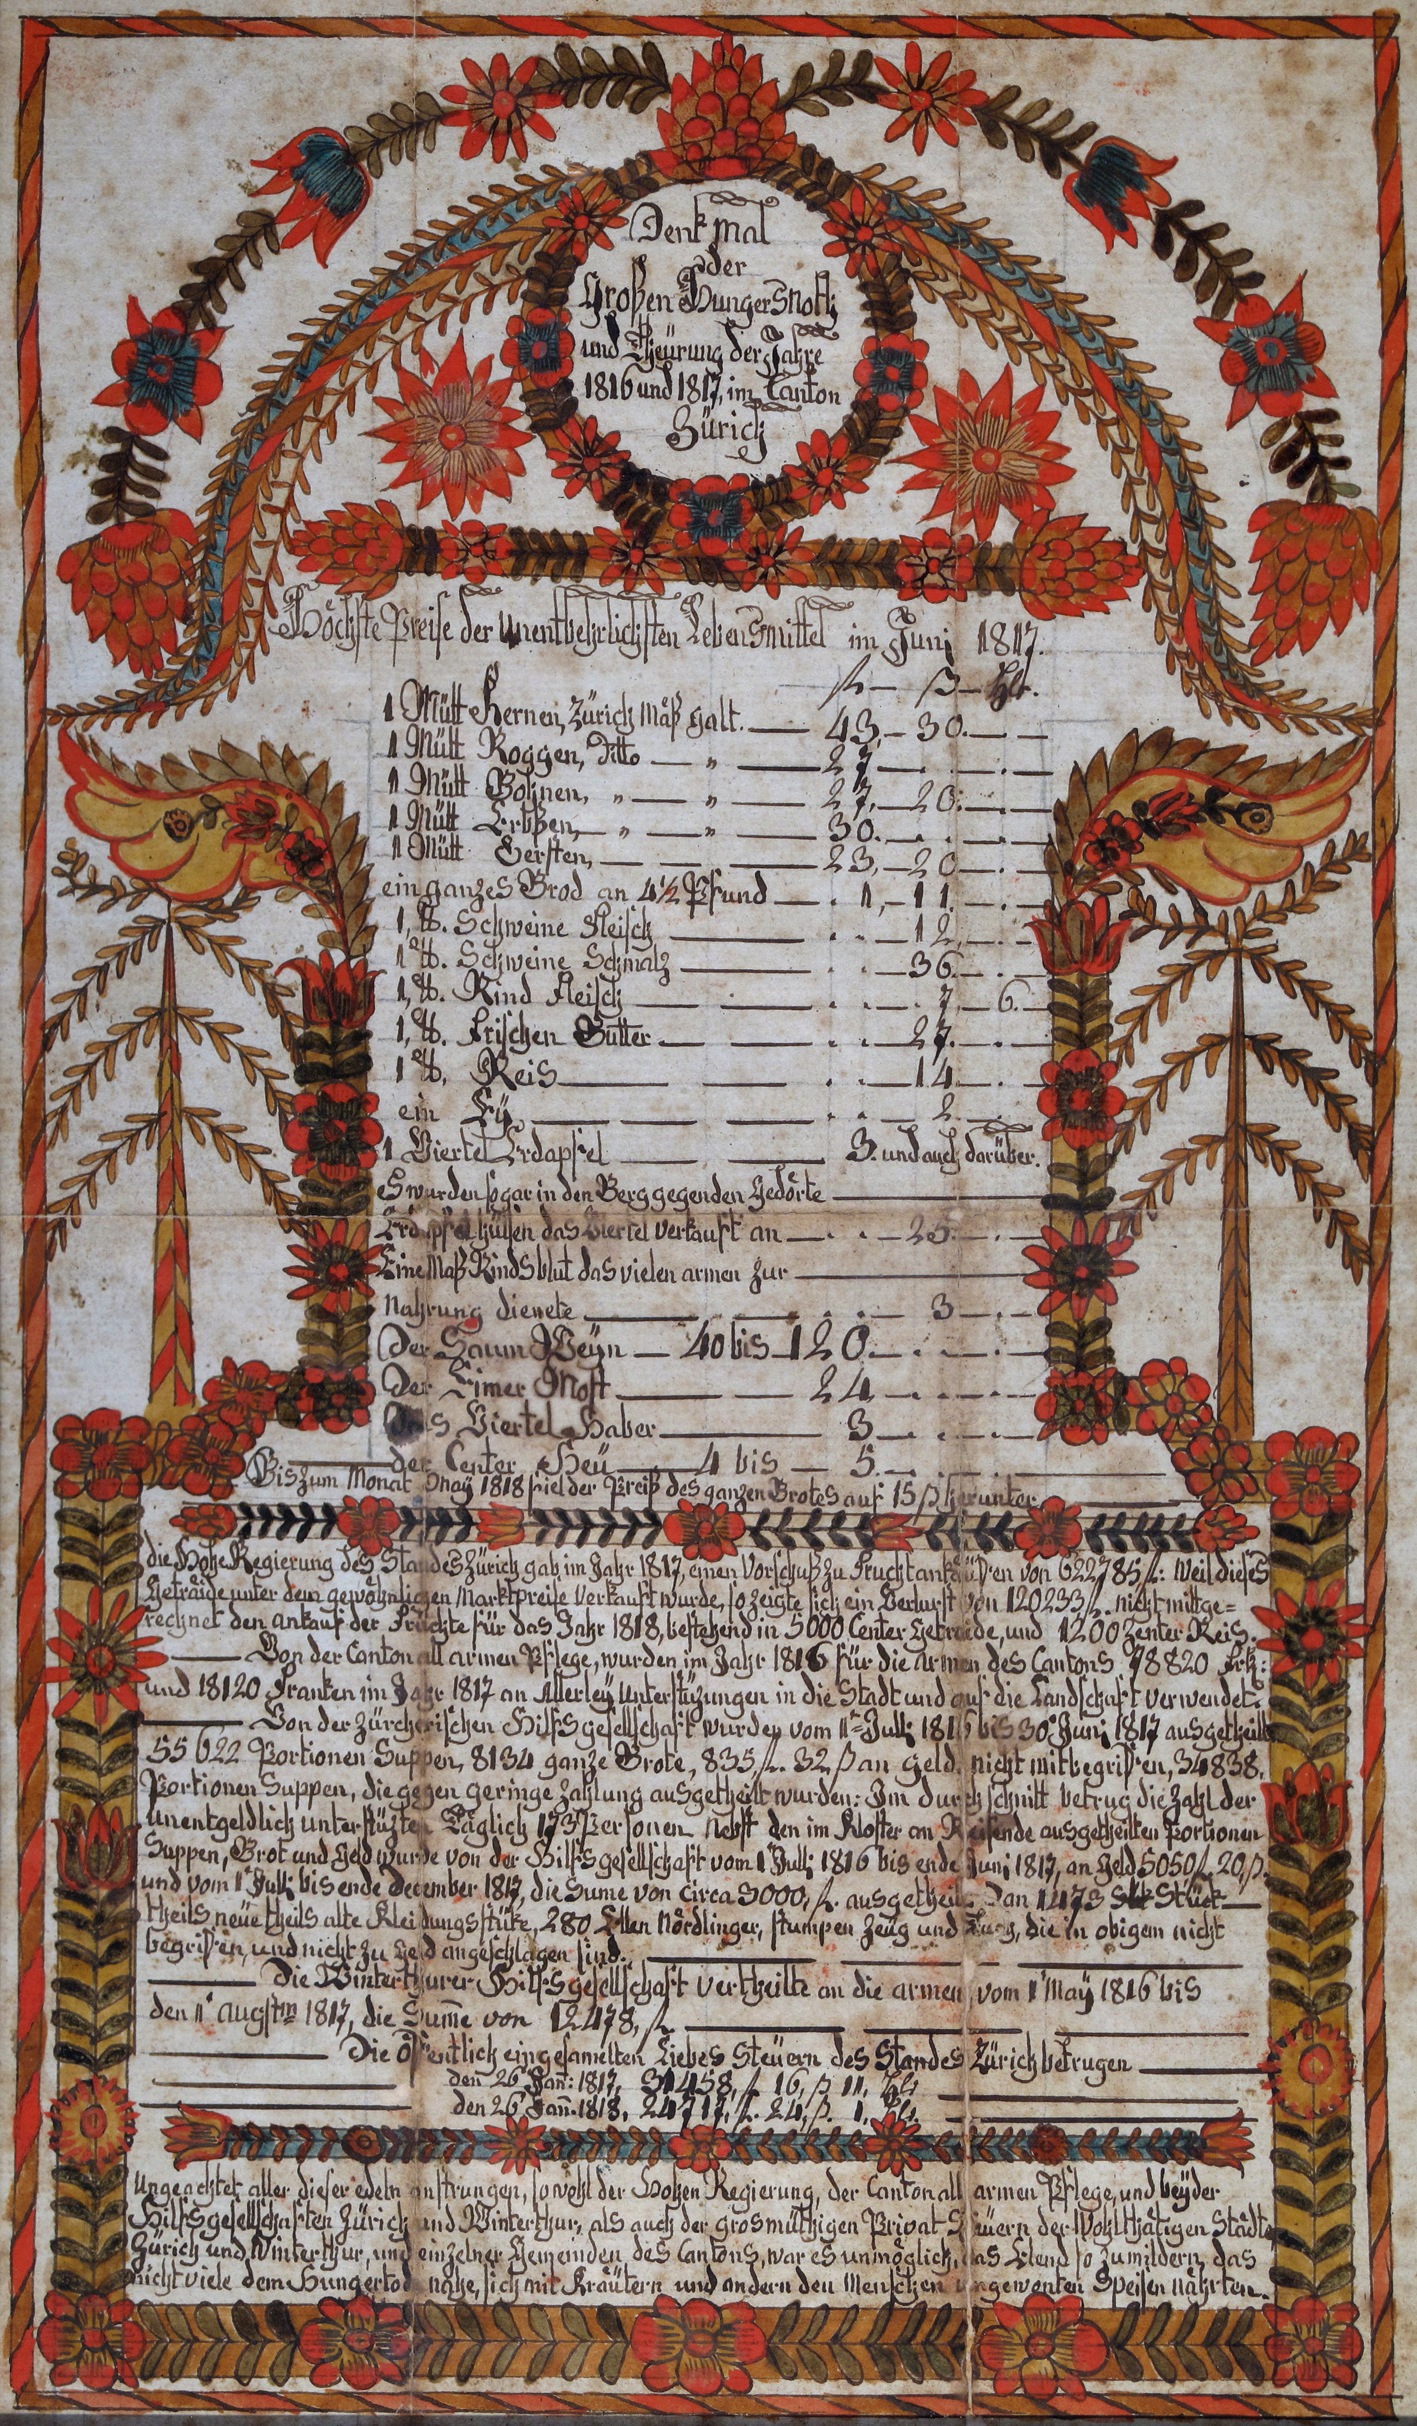 Denkmal
der
Großen Hungersnoth
und Theürung der Jahre
1816 und 1817, im Canton
Zürich
Höchste Preise der unentbehrlichsten Lebensmittel im Junj 1817.
fl. — ß — Hlr.
1 Mütt Kernen, Zürich Mäß galt. — 43. — 30. — —
1 Mütt Roggen, Ditto — „ — 27 — . — . —
1 Mütt Bohnen, „ — „ — 27, — 20. — . —
1 Mütt Erbßen, — „ — „ — 30. — . — . —
1 Mütt Gersten, — — — 23, — 20 — . —
ein ganzes Brod an 4½ Pfund — . 1, — 11. — . —
1, ℔. Schweine Fleisch — . . — 12. — . —
1 ℔. Schweine Schmalz — . . — 36. — . —
1, ℔. Rind Fleisch — — . . . 7, — 6. —
1, ℔. Frischen Butter — — — . . — 27. — . —
1 ℔. Reis — — — . . — 14. — . —
ein Ey, — — — . . — 2. — . —
1 Viertel Erdapfel — — 3. und auch darüber.
es wurden sogar in den Berggegenden Gedörte —
Erdapfel hülsen das Viertel verkauft an — . . — 25. — . —
Eine Maß Rindsblut das vielen armen zur —
Nahrung dienete — — . . — 3 — . —
Der Saum Weyn — 40 bis 120. — . — . —
Der Eimer Most — — 24 — . . — . —
Das Viertel Haber — 3 — . . — . —
der Center Heü — 4 bis — 5. — . — . —
Bis zum Monat May 1818 fiel der Preiß des ganzen Brotes auf 15 ß herunter —
die Hohe Regierung des Standes Zürich gab im Jahr 1817, einen Vorschuß zu Fruchtankäuffen von 622785 fl: weil dieses
Getraide unter dem gewöhnlichen Marktpreise verkauft wurde, so zeigte sich ein Verlurst von 120233 fl. nicht mittge=
rechnet den ankauf der Früchte für das Jahr 1818, bestehend in 5000 Center Getraide, und 1200 Zenter Reis.
— Von der Cantonall armen Pflege, wurden im Jahr 1816 für die armen des Cantons 78820 Frk:
und 18120 Franken im Jahr 1817 an Allerley Unterstüzungen in die Stadt und auf die Landschaft verwendet.
— Von der Zürcherischen Hilfsgesellschaft wurden vom 1ten Julj 1816 bis 30 Junj 1817 ausgetheilt
55622 Portionen Suppen, 8134 ganze Brote, 835, fl. 32 ß an Geld, nicht mitbegriffen, 34838,
Portionen Suppen, die gegen geringe Zahlung ausgetheilt wurden: Im durchschnitt betrug die Zahl der
unentgeldlich unterstüzten Täglich 173 Personen Nebst den im Kloster an Reisende ausgetheilten Portionen
Suppen, Brot und Geld wurde von der Hilfsgesellschaft vom 1 Julj 1816 bis ende Junj 1817, an Geld 5050 fl. 20, ß.
und vom 1 Julj bis ende December 1817, die Sume von Circa 3000, fl. ausgetheilt. Dan 1473 Stück —
theils neüe theils alte Kleidungsstüke, 280 Ellen Nördlinger, stumpen Zeug und Tuch, die in obigem nicht
begriffen, und nicht zu Geld angeschlagen sind. —
— Die Winterthurer Hilfsgesellschaft vertheilte an die armen vom 1 May 1816 bis
den 1 augstm 1817, die Sume von 12478, fl. —
— Die öffentlich eingesamelten Liebes Steüern des Standes Zürich betrugen —
— den 26 Jan: 1817, 31458, fl. 16, ß 11, Hlr —
— den 26 Jan. 1818, 24717, fl. 24, ß. 1, Hlr. —
Ungeachtet aller dieser edeln anstrungen, sowohl der Hohen Regierung, der Cantonall armen Pflege, und beyder
Hilfsgesellschaften Zürich und Winterthur, als auch der grosmüthigen Privat Steüern der Wohlthätigen Städte
Zürich und Winterthur, und einzelner Gemeinden des Cantons, war es unmöglich, das Elend so zu mildern, das
nicht viele dem Hungertod nahe, sich mit Kräutern und andern den Menschen ungewonten Speisen nährten.